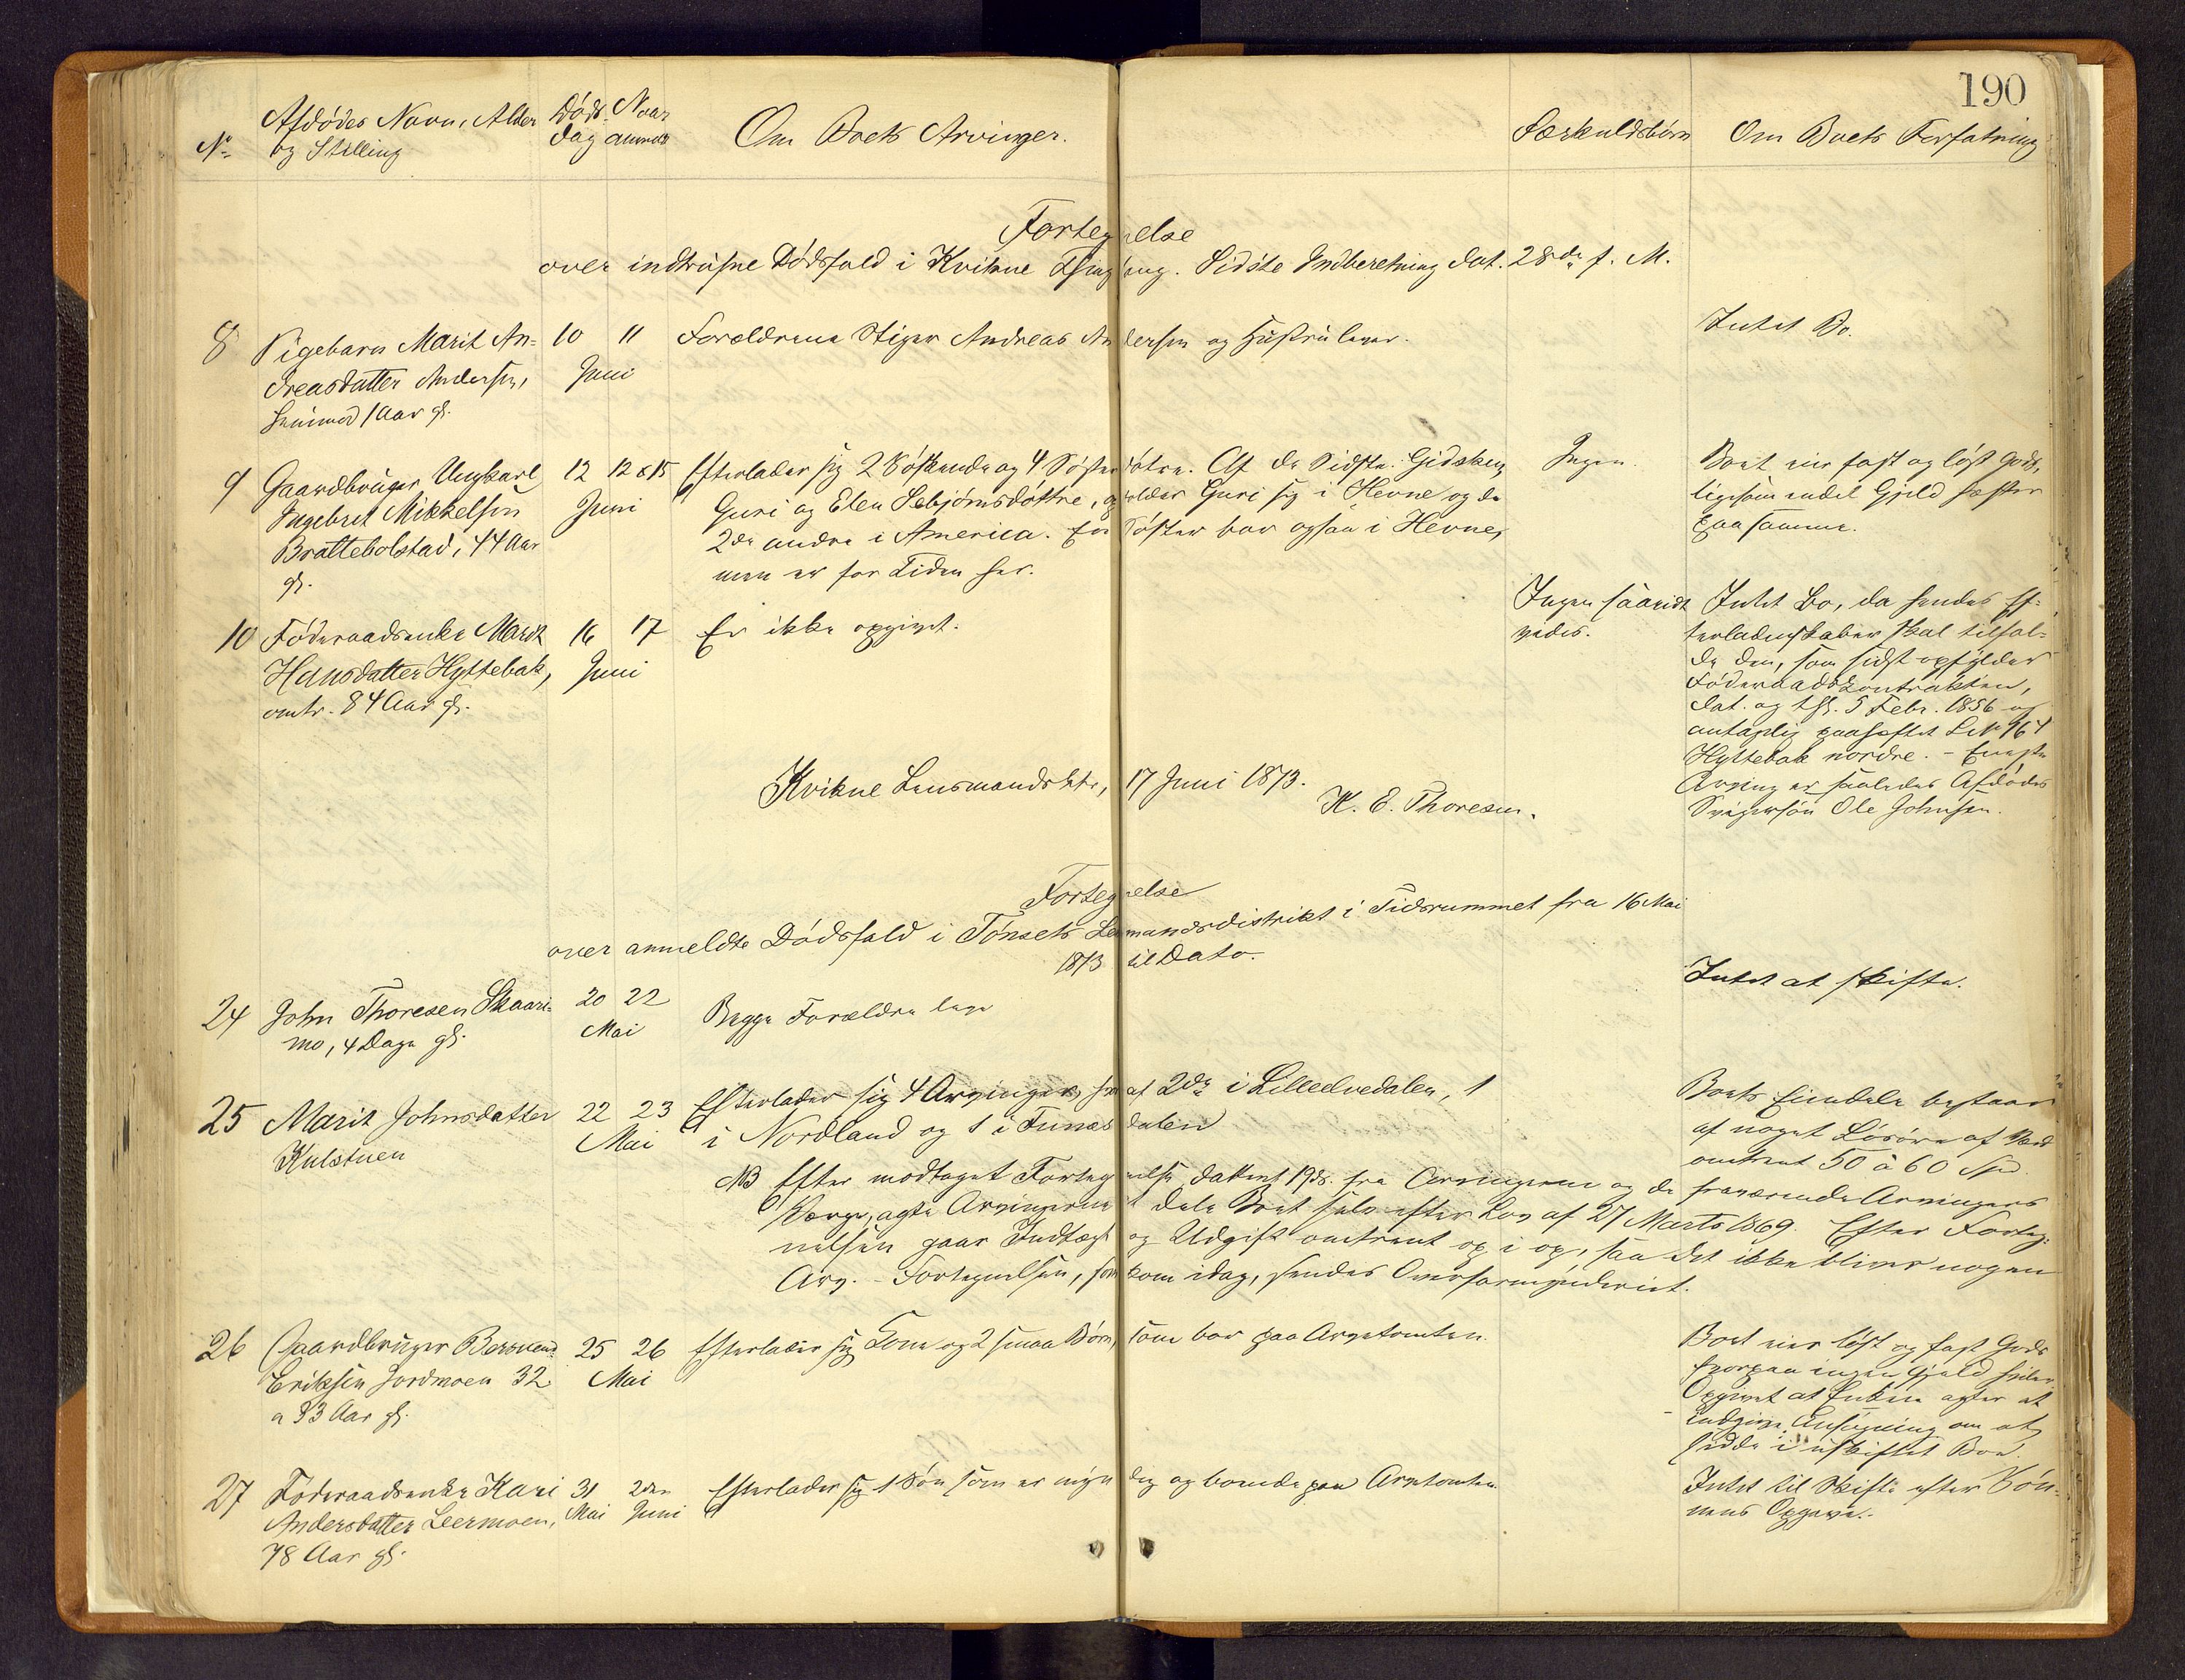 190
No
Afdødes Navn, Alder
og Stilling
Døds-
dag
Naar
anmeldt
Om Boets Arvinger.
Særkuldsbørn
Om Boets Forfatning
Fortegnelse
over indtrufne Dødsfald i Kvikne Thinglaug. Sidste Indberetning dat. 28de f. M.
8
Pigebarn Marit An-
dreasdatter Andersen,
1 Aar gl.
10 11
Juni
Forældrene Stiger Andreas Andersen og Hustru lever.
Intet Bo.
9
Gaardbruger Ungkarl
Ingebret Mikkelsen
Brattebolstad, 44 Aar
gl.
12 12 & 15
Juni
Efterlader sig 2 Søskende og 4 Søsterdøtre. Af de Sidste Gidsken,
Guri og Elen Sebjørnsdøttre, opholder Guri sig i Hevne og de
2de andre i America. En Søster bor ogsaa i Hevne,
men er for Tiden her.
Ingen.
Boet eier fast og løst Gods,
ligesom endel Gjeld hefter
paa samme.
10
Føderaadsenke Marit
Hansdatter Hyttebak,
omtr. 84 Aar gl.
16 17
Juni
Er ikke opgivet.
Ingen saavidt
vides.
Intet Bo, da hendes Ef-
terladenskaber skal tilfal-
de den, som sidst opfylder
Føderaadskontrakten,
dat. og thl. 5 Febr. 1856 og
antagelig paaheftet L No 164
Hyttebak nordre. - Eneste
Arving er saaledes Afdødes
Svigersøn Ole Johnsen.
Kvikne Lensmandsbst., 17 Juni 1873.
K. E. Thoresen.
Fortegnelse
over anmeldte Dødsfald i Tønsets Lensmandsdistrikt i Tidsrummet fra 16 Mai
1873 til Dato.
24
John Thoresen Skaari-
mo, 4 Dage gl.
20 22
Mai
Begge Forældre leve
Intet at skifte.
25
Marit Johnsdatter
Kulstuen
22 23
Mai
Efterlader sig 4 Arvinger, hvoraf 2de i Lilleelvedalen, 1
i Nordland og 1 i Funæsdalen
Boets Eiendele bestaar
af noget Løsøre af Værd
omtrent 50 à 60 Spd.
NB Efter modtaget Fortegnelse, dateret 19ds. fra Arvingerne og de fraværende Arvingers
Værge, agte Arvingerne at dele Boet selv efter Lov af 27 Marts 1869. Efter Forteg-
nelsen gaar Indtægt og Udgift omtrent op i op, saa det ikke bliver nogen
Arv. - Fortegnelsen, som kom idag, sendes Overformynderiet.
26
Gaardbruger Bersvend
Eriksen Jordmoen 32
a 33 Aar gl.
25 26
Mai
Efterlader sig Kone og 2 smaa Børn, som bor paa Arvetomten.
Boet eier løst og fast Gods
hvorpaa ingen Gjeld hviler
Opgivet at Enken agter at
indgive Ansøgning om at
sidde i uskiftet Bo.
27
Føderaadsenke Kari
Andersdatter Leermoen,
78 Aar gl.
31 2den
Mai Juni
Efterlader sig 1 Søn som er myndig og boende paa Arvetomten.
Intet til Skifte efter Søn-
nens Opgave.-